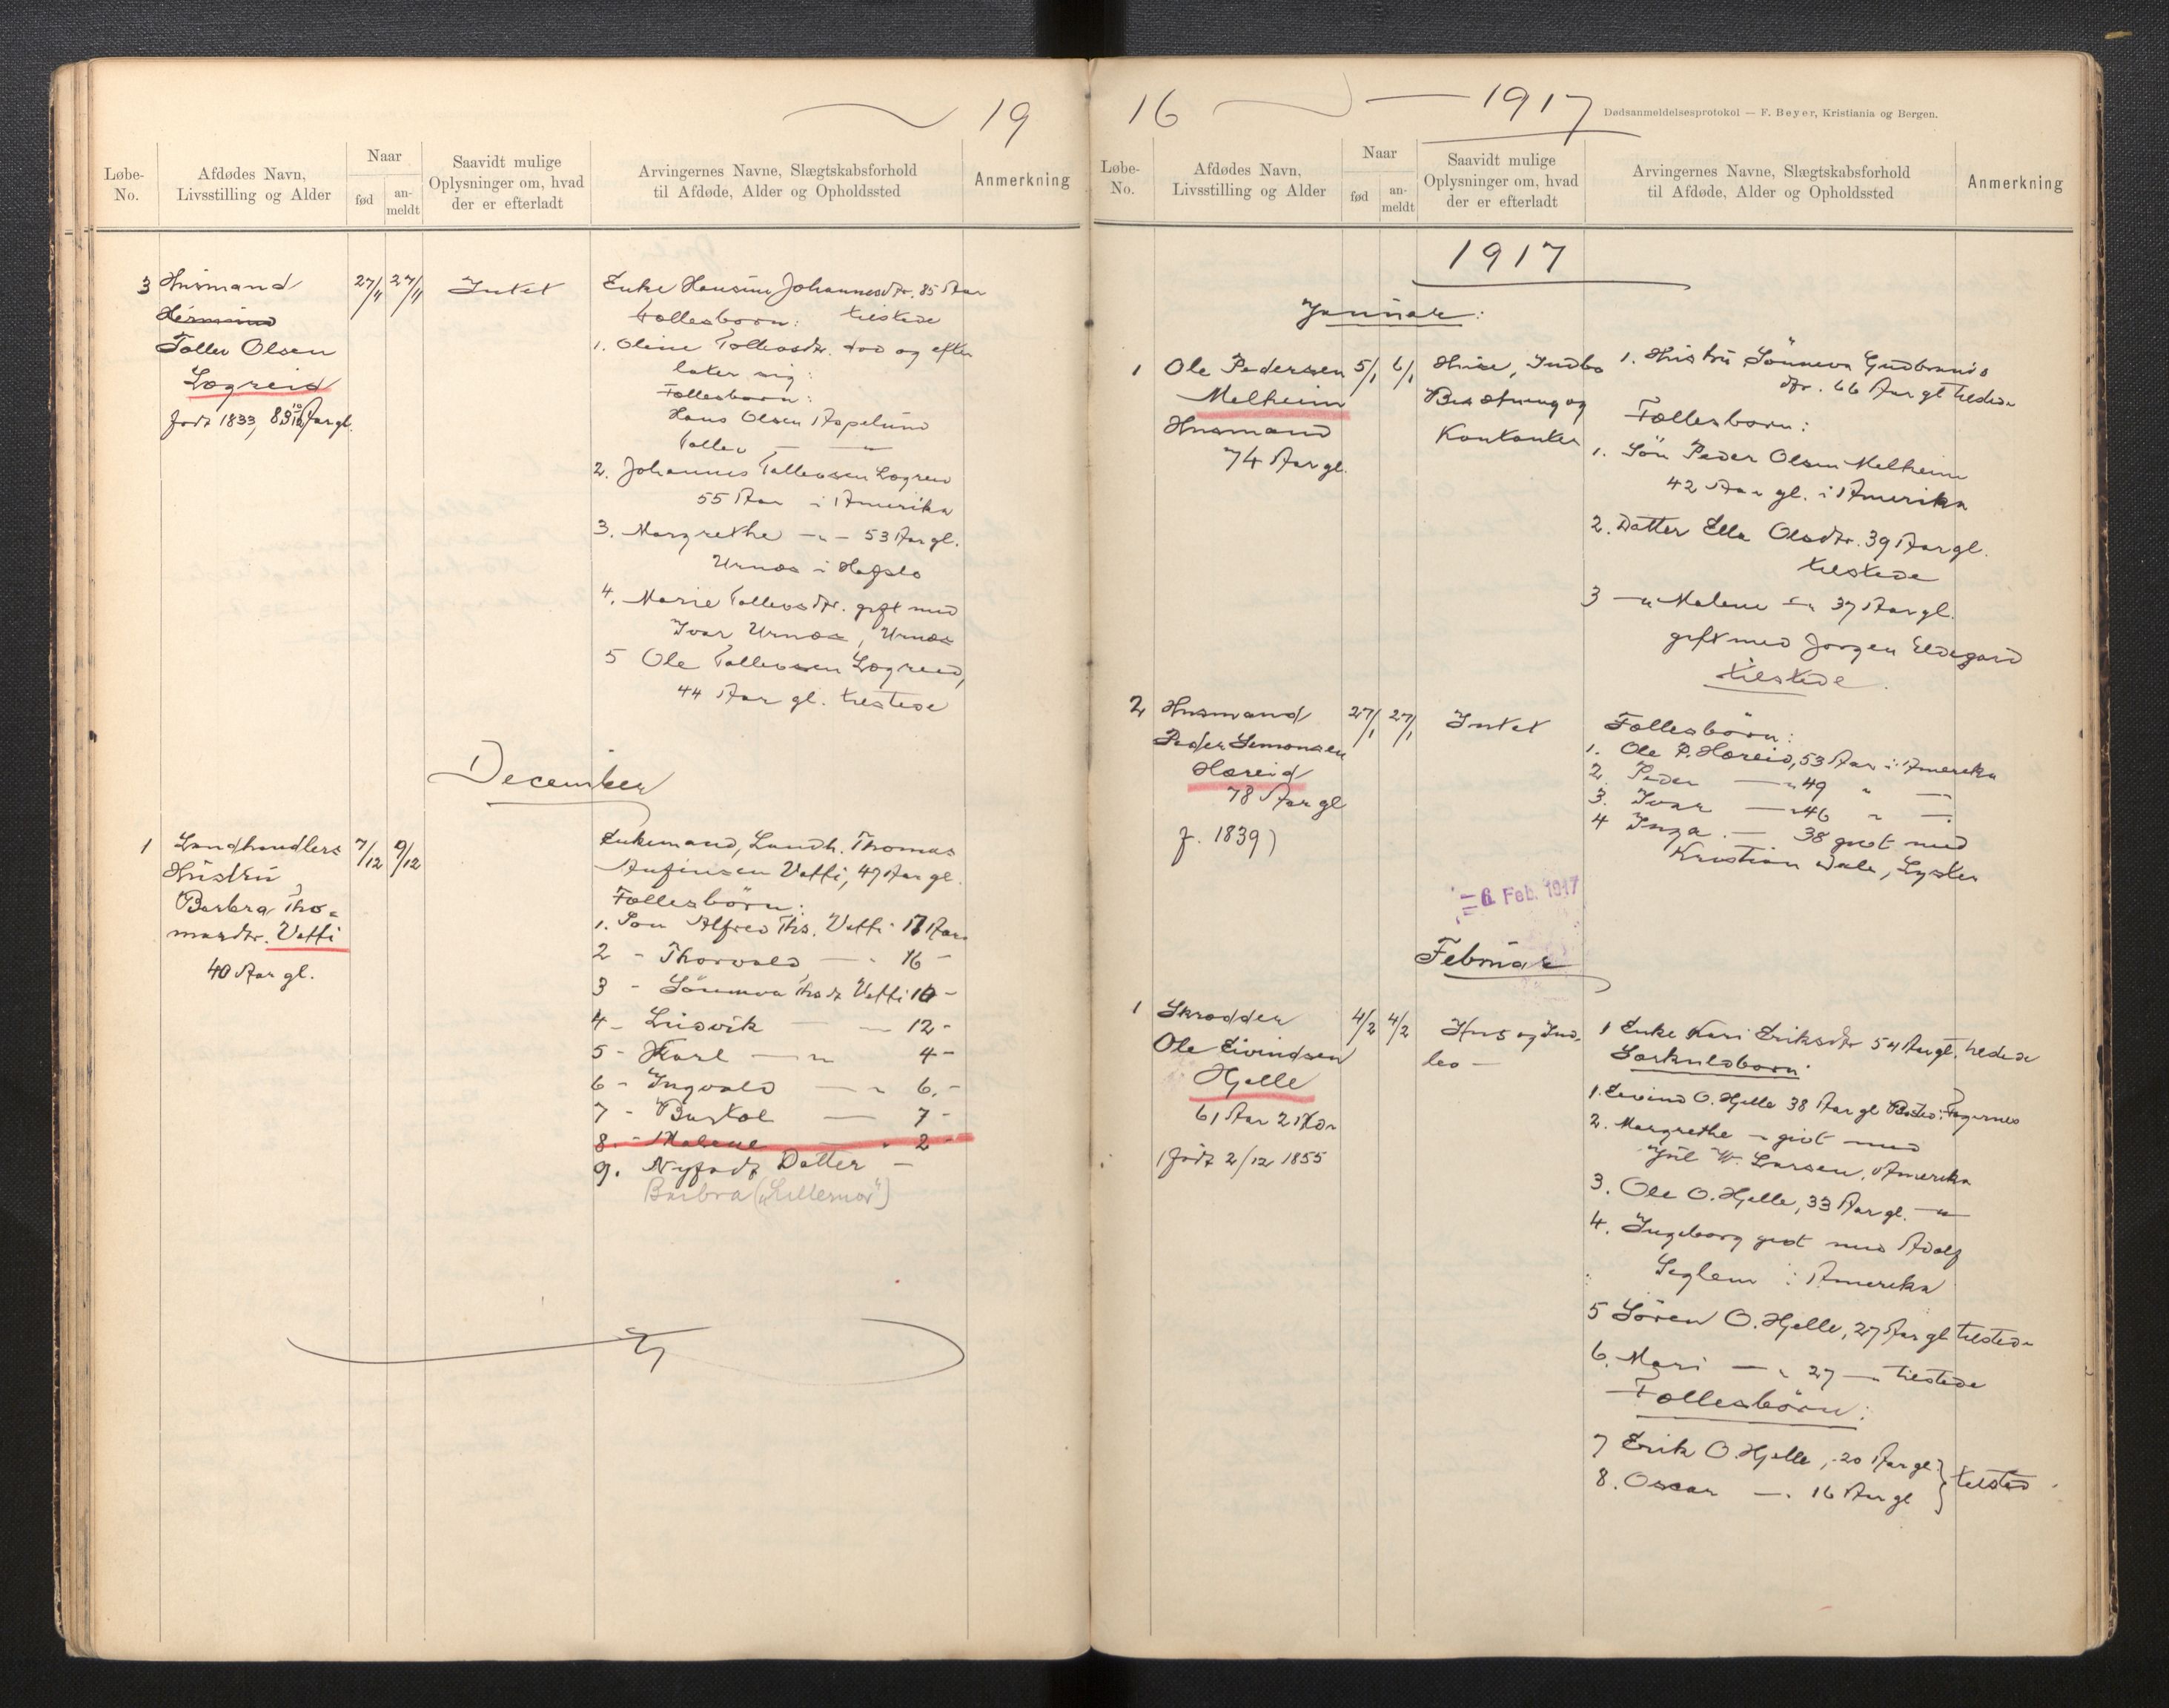 19
Løbe-
No.
Afdødes Navn,
Livsstilling og Alder
Naar
fød
an-
meldt
Saavidt mulige
Oplysninger om, hvad
der er efterladt
Arvingernes Navne, Slægtskabsforhold
til Afdøde, Alder og Opholdssted
Anmerkning
3 Husmand 27/11 27/11 Intet
Tollev Olsen
Lægreid
født 1833, 83 10/12 Aar gl.
Enke Hansine Johannesdtr. 85 Aar
Fællesbørn: tilstede
1. Oline Tollevsdtr. død og efter
later sig:
Fællesbørn:
Hans Olsen Aspelund
Tollev — "
2. Johannes Tollevsen Lægreid
55 Aar i Amerika
3. Margrethe -"- 53 Aar gl.
Urnæs i Hafslo
4. Marie Tollevsdtr. gift med
Ivar Urnæs, Urnæs
5 Ole Tollevsen Lægreid,
44 Aar gl. tilstede
December
1 Landhandlers 7/12 9/12
Hustru
Barbra Tho-
masdtr. Vetti
40 Aar gl.
Enkemand, Landh. Thomas
Anfinsen Vetti, 47 Aar gl.
Fællesbörn:
1. Søn Alfred Ths. Vetti 17 Aar
2 - Thorvald — " 16 -
3 - Sönneva Thsdt Vetti 10 -
4 - Ludvik — — 12 -
5 - Karl — " 4 -
6 - Ingvald — " 6. -
7 - Bertol — 7 -
8. - Malene — " 2 -
9. Nyfødt Datter —
Barbra („Lillemor")
16 — 1917
Dødsanmeldelsesprotokol — F. Beyer, Kristiania og Bergen.
Løbe-
No.
Afdødes Navn,
Livsstilling og Alder
Naar
fød
an-
meldt
Saavidt mulige
Oplysninger om, hvad
der er efterladt
Arvingernes Navne, Slægtskabsforhold
til Afdøde, Alder og Opholdssted
Anmerkning
1917
Januar:
1 Ole Pedersen 5/1 6/1 Huse, Indbo
Melheim Besætning og
Husmand Kontanter
74 Aar gl.
1. Hustru Sönneva Gudbrands
dtr. 66 Aar gl tilstede
Fællesbørn:
1. Sön Peder Olsen Melheim
42 Aar gl. i Amerika
2. Datter Ella Olsdtr. 39 Aar gl.
tilstede
3 —" Malene —" 37 Aar gl.
gift med Jørgen Eldegard
tilstede.
2 Husmand 27/1 27/1 Intet
Peder Simonsen
Høreid
78 Aar gl
f. 1839)
Fællesbörn:
1. Ole P. Høreid, 53 Aar i Amerika
2. Peder —" 49 " —
3. Ivar —" 46 " —
4 Inga. — 38 givt med
Kristian Dale, Lyster
6 Feb. 1917
Februar
1 Skrædder 4/2 4/2 Hus og Ind-
Ole Eivindsen bo —
Hjelle
61 Aar 2 Mdr
født 2/12 1855
1 Enke Kari Eriksdtr 54 Aar gl. tilstede
Særkuldbørn:
1. Eivind O. Hjelle 38 Aar gl Bosted: Fagernes
2. Margrethe — givt med
W. Larsen, Amerika
3. Ole O. Hjelle, 33 Aar gl. —"
4. Ingeborg givt med Adolf
Seglem i Amerika
5 Sören O. Hjelle, 27 Aar gl tilstede
6. Mari —" 27 —" tilstede
Fællesbörn:
7 Erik O. Hjelle, 20 Aar gl. } tilsted
8. Oscar — " 16 Aar gl